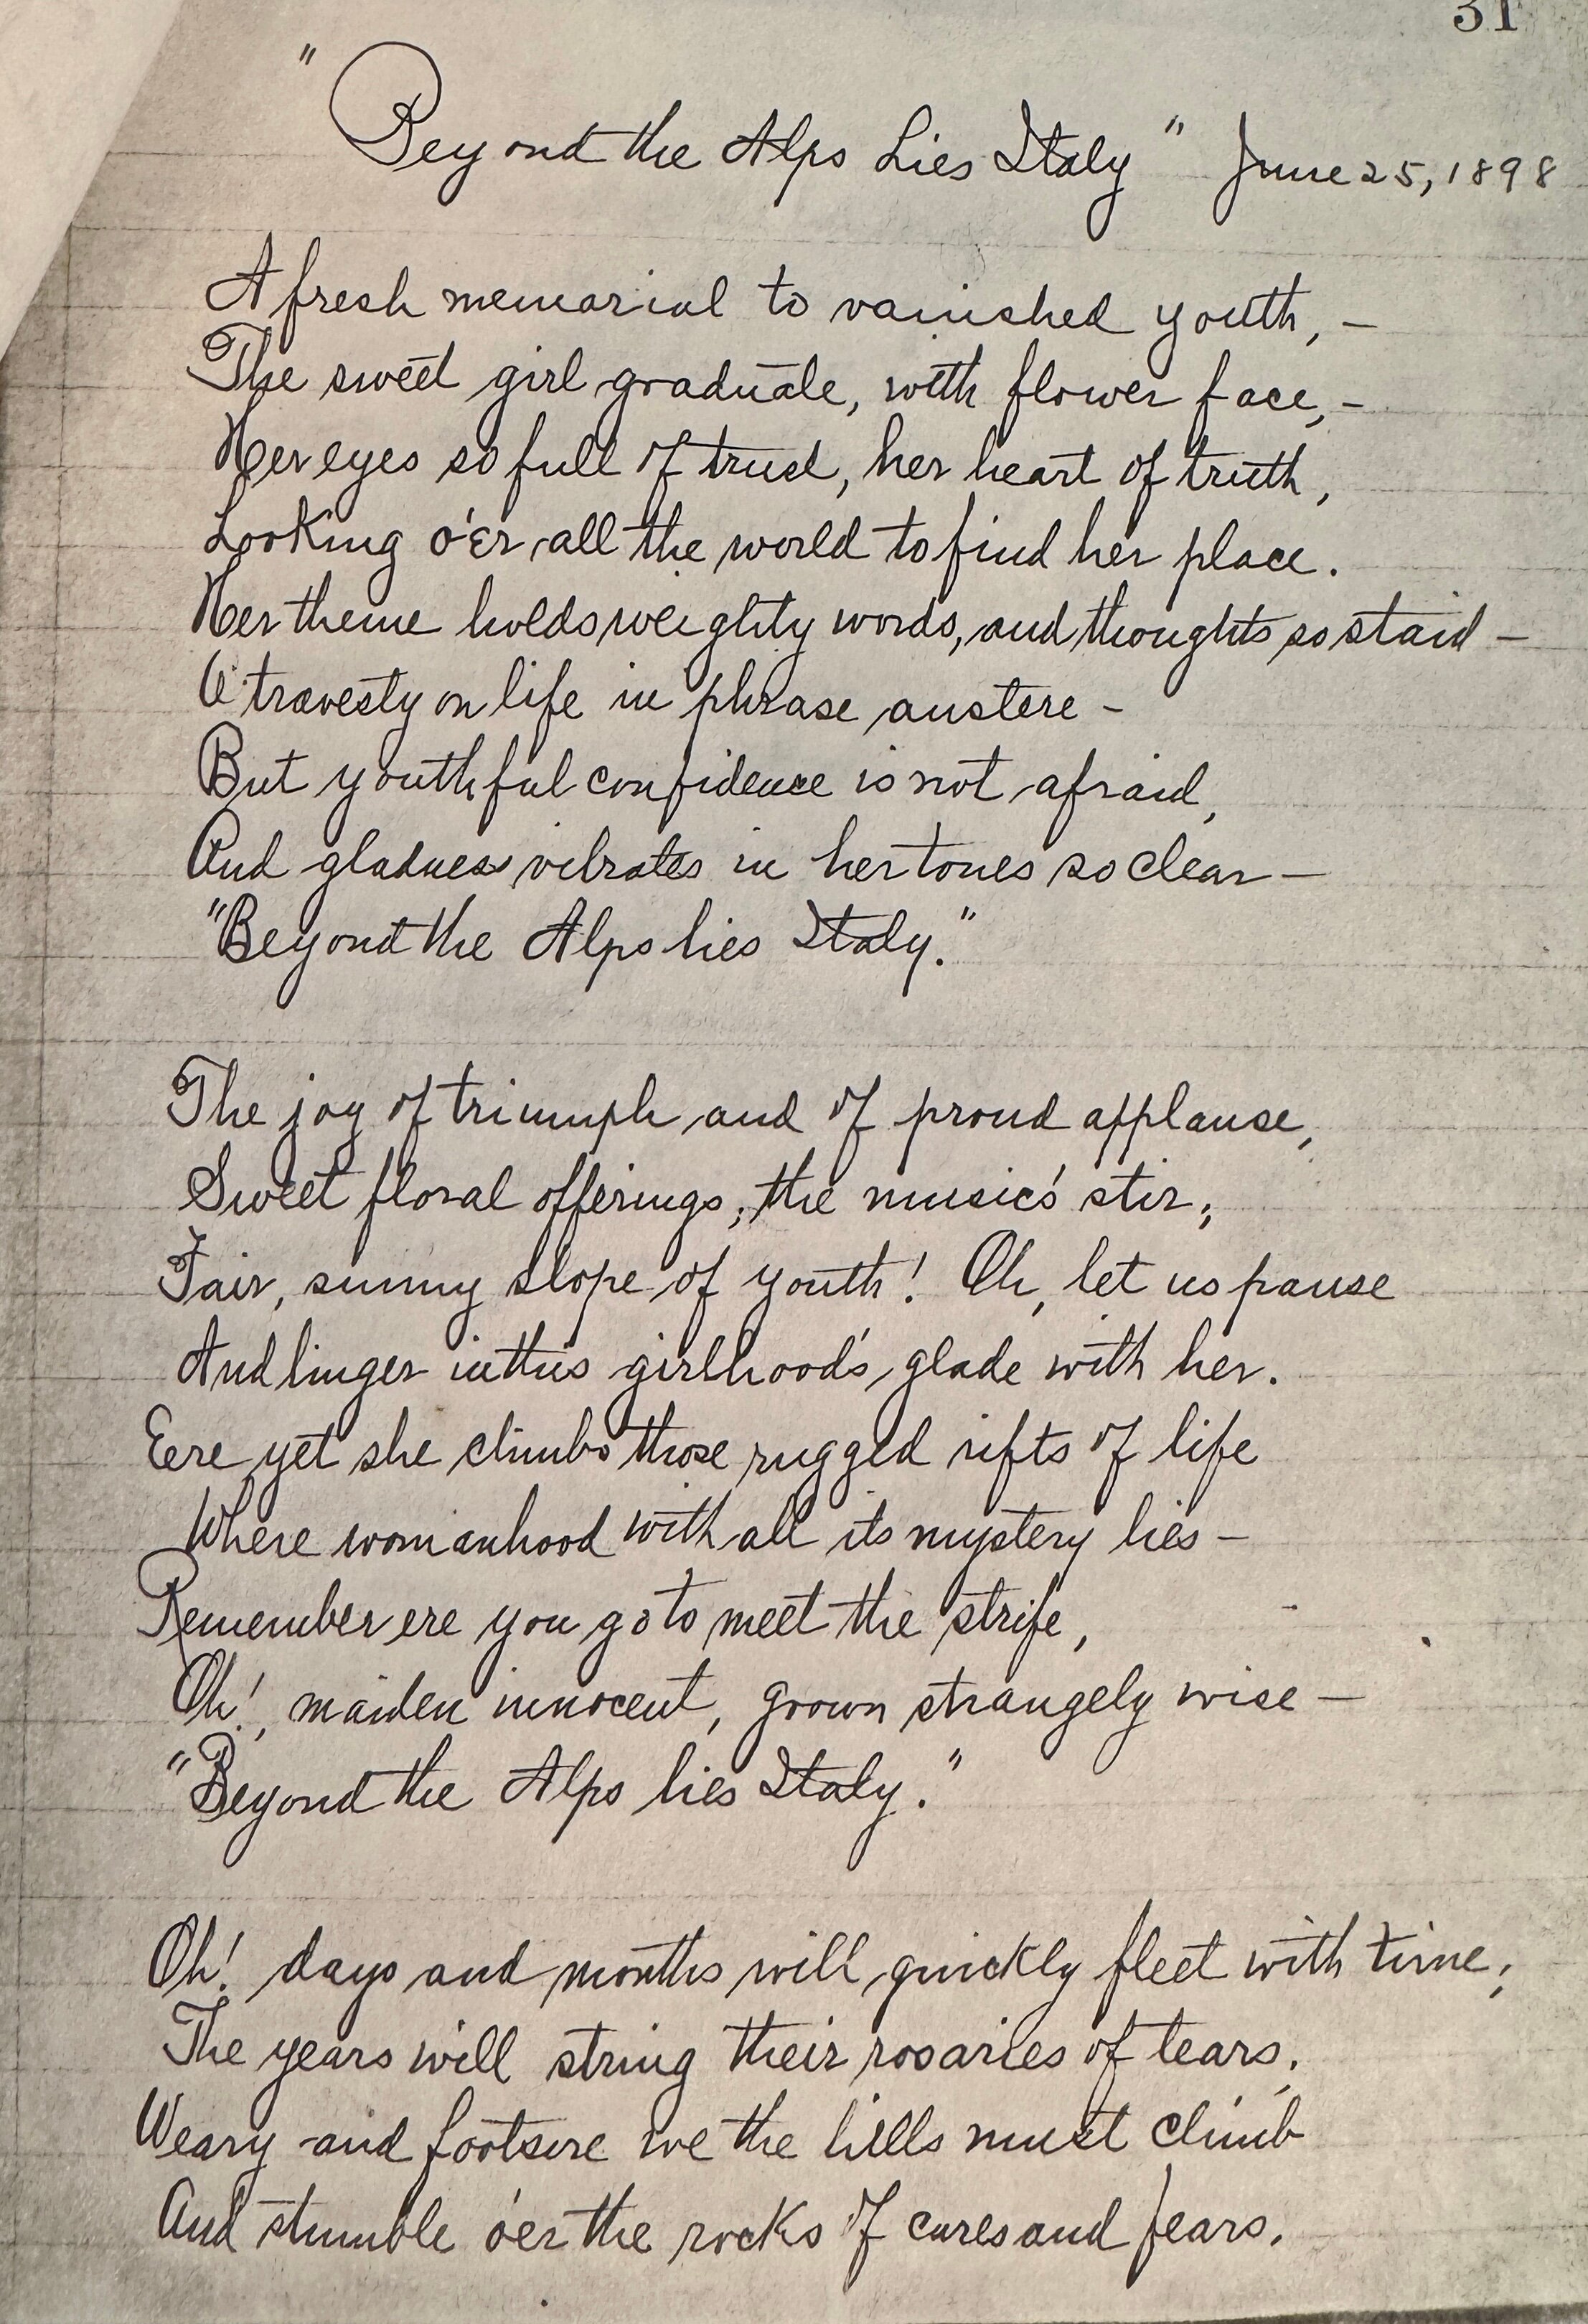 31
"Beyond the Alps Lies Italy" June 25, 1898
A fresh memorial to vanished youth, –
The sweet girl graduate, with flower face, –
Her eyes so full of trust, her heart of truth,
Looking o'er all the world to find her place.
Her theme holds weighty words, and thoughts so staid –
A travesty on life in phrase austere –
But youthful confidence is not afraid,
And gladness vibrates in her tones so clear –
"Beyond the Alps lies Italy."
The joy of triumph and of proud applause,
Sweet floral offerings; the music's stir;
Fair, sunny slope of youth! Oh, let us pause
And linger in this girlhood's glade with her.
Eere yet she climbs those rugged rifts of life
Where womanhood with all its mystery lies –
Remember ere you go to meet the strife,
Oh!, maiden innocent, grown strangely wise –
"Beyond the Alps lies Italy."
Oh! days and months will quickly fleet with time;
The years will string their rosaries of tears.
Weary and footsore we the hills must climb
And stumble o'er the rocks of cares and fears.